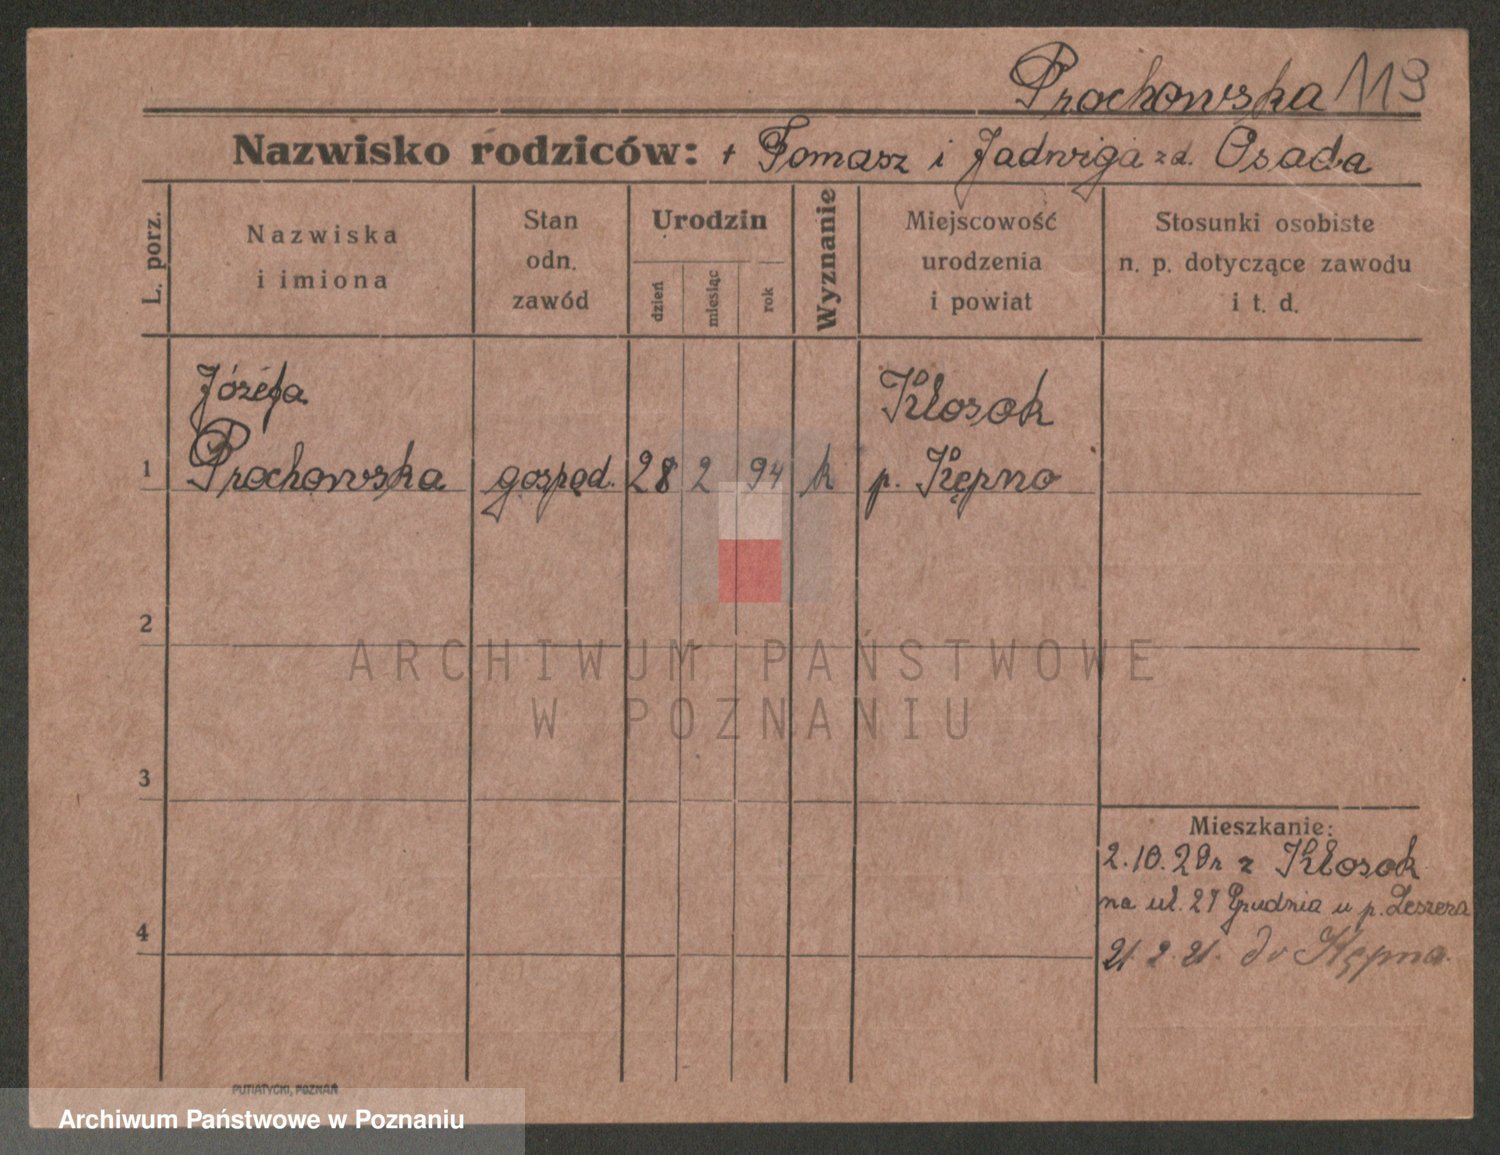 Prochowska 113
Nazwisko rodziców: + Tomasz i Jadwiga z d. Osada
L. porz.
Nazwiska
i imiona
Stan
odn.
zawód
Urodzin
dzień
miesiąc
rok
Wyznanie
Miejscowość
urodzenia
i powiat
Stosunki osobiste
n. p. dotyczące zawodu
i t. d.
Józefa
Kłosok
1 Prochowska gospod. 28 2 94 k p. Kępno
2
ARCHIWUM PAŃSTWOWE
W POZNANIU
3
Mieszkanie:
2.10.20r z Kłosok
na ul. 27 Grudnia u p.
4
21. 2. 21. do Kępna.
PUTIATYCKI, POZNAŃ
Archiwum Państwowe w Poznaniu